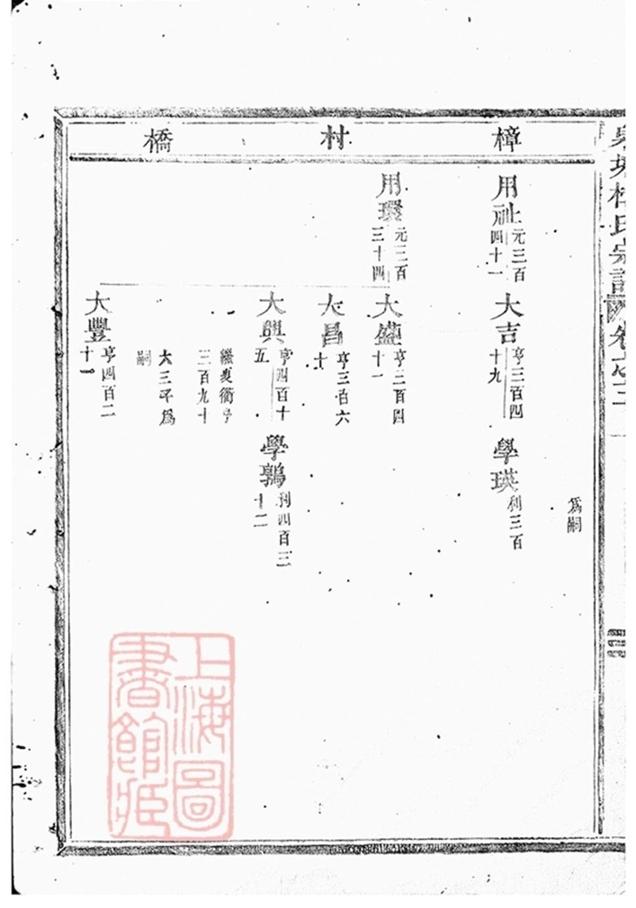 樟村橋
為嗣
用祉 元三百四十一
大吉 亨三百四十九
學瑛 利三百
用環 元三百三十四
大盛 亨三百四十一
大昌 亨三百六十
大興 亨四百十五
學鶉 利四百三十二
三百九十
大三子為嗣
大豐 亨四百二十一
上海圖書館藏